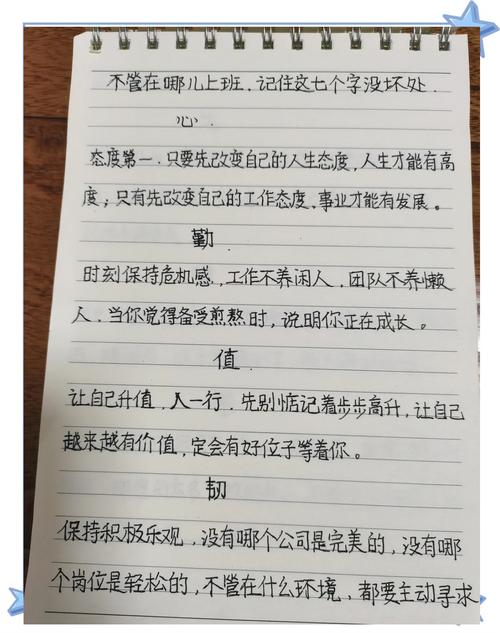 不管在哪儿上班，记住这七个字没坏处．
心．
态度第一．只要先改变自己的人生态度，人生才能有高
度；只有先改变自己的工作态度，事业才能有发展。
勤
时刻保持危机感，工作不养闲人，团队不养懒
人．当你觉得备受煎熬时，说明你正在成长。
值
让自己升值，人一行．先别惦记着步步高升，让自己
越来越有价值，定会有好位子等着你。
韧
保持积极乐观，没有哪个公司是完美的，没有哪
个岗位是轻松的，不管在什么环境、都要主动寻求